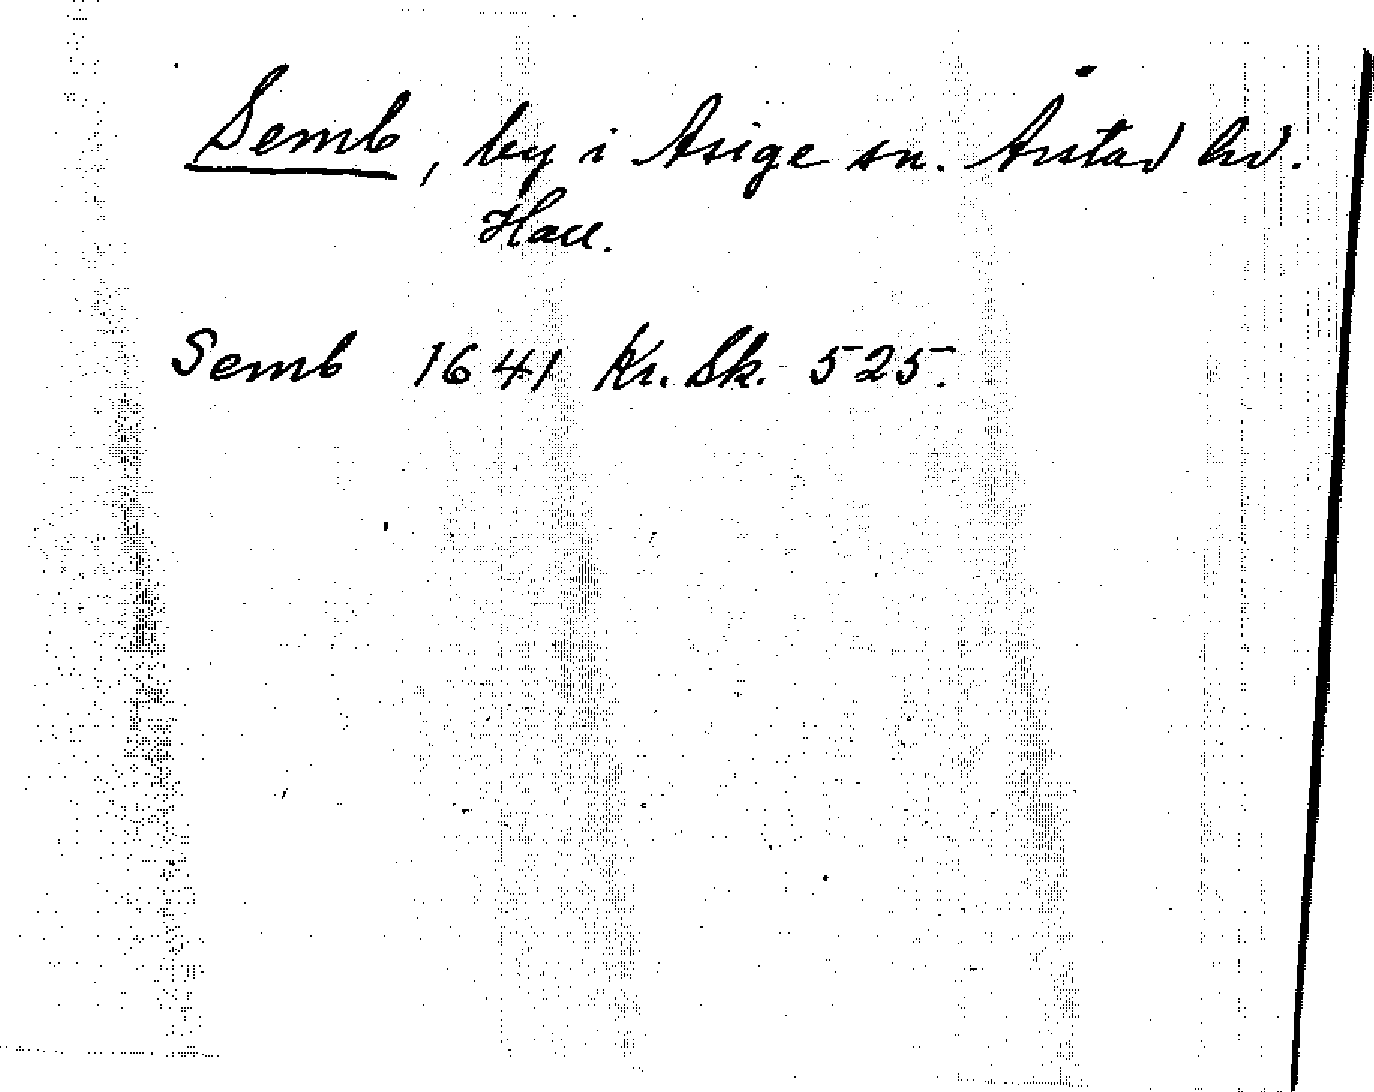 Semb, by i Asige sn. Årstad hd.
Hall.
Semb 1641 Kr. Sk. 525.